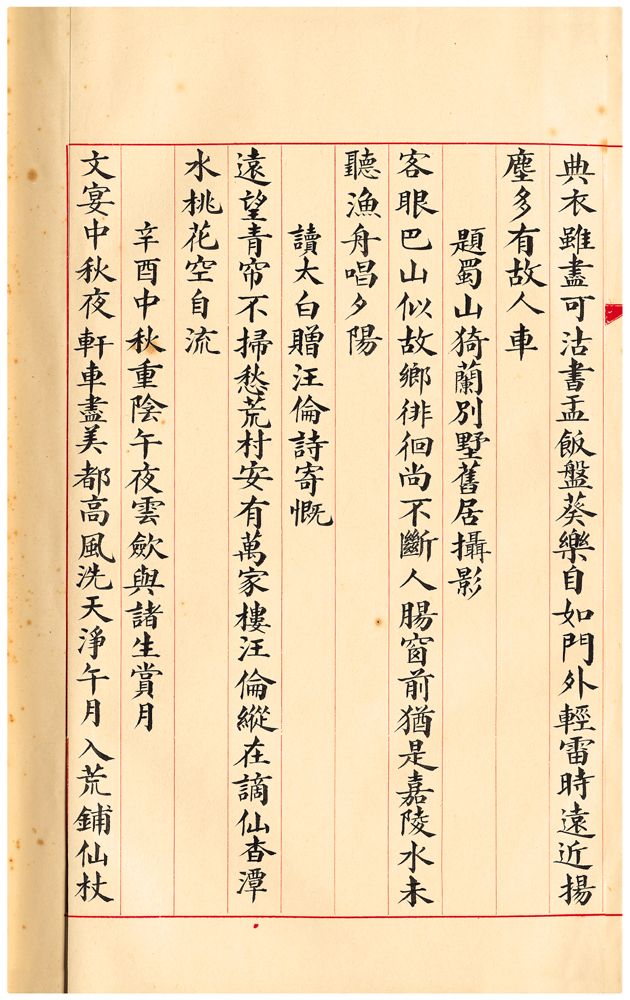 典衣雖盡可沽書盂飯盤葵樂自如門外輕雷時遠近揚
塵多有故人車
題蜀山猗蘭別墅舊居攝影
客眼巴山似故鄉徘徊尚不斷人腸窗前猶是嘉陵水未
聽漁舟唱夕陽
讀太白贈汪倫詩寄慨
遠望青帘不掃愁荒村安有萬家樓汪倫縱在謫仙杳潭
水桃花空自流
辛酉中秋重陰午夜雲歛與諸生賞月
文宴中秋夜軒車盡美都高風洗天淨午月入荒鋪仙杖